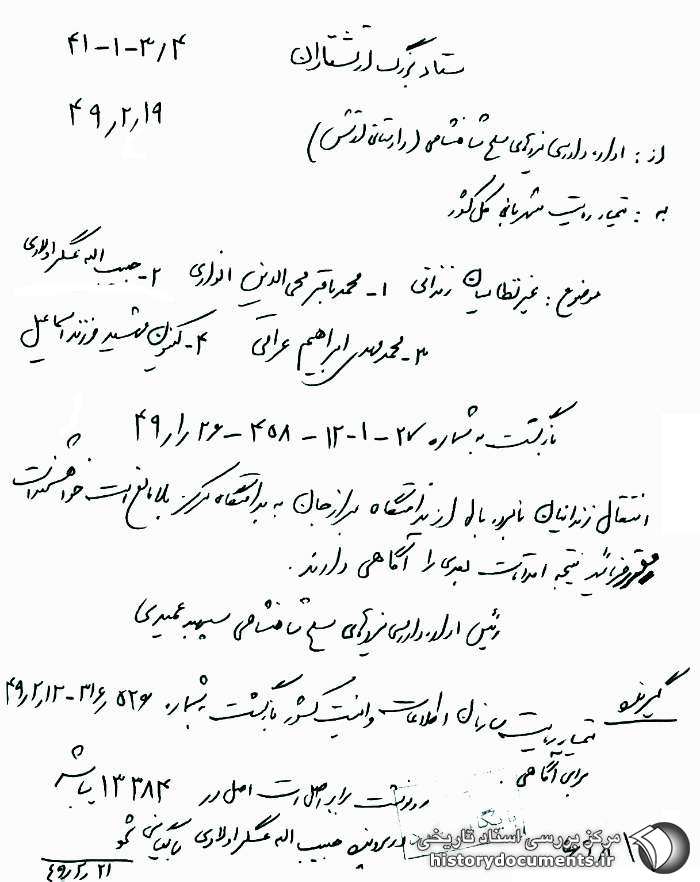 ستاد بزرگ ارتشتاران
۴۱-۱-۳/۴
۴۹/۲/۱۹
از: اداره دادرسی نیروهای مسلح شاهنشاهی (دادستانی ارتش)
به: تیمسار ریاست شهربانی کل کشور
موضوع: غیرنظامیان زندانی ۱- محمدباقر محی‌الدین انواری ۲- حبیب اله عسگراولادی
۳- محمدمهدی ابراهیم عراقی ۴- کیومرث فرزند اسماعیل
بازگشت به شماره ۲۷-۱-۱۲-۴۵۸-۲۶/۱/۴۹
انتقال زندانیان نامبرده بالا از ندامتگاه برازجان به ندامتگاه مرکز بلامانع است خواهشمند است
مقرر فرمائید نتیجه اقدامات بعدی را آگاهی دارند.
رئیس اداره دادرسی نیروهای مسلح شاهنشاهی سپهبد عمیدی
گیرنده
تیمسار ریاست سازمان اطلاعات و امنیت کشور بازگشت بشماره ۳۱۶/۵۲۶-۴۹/۲/۱۲
برای آگاهی.
رونوشت برابر اصل است اصل در ۱۳۳۸۴ باشد
در پرونده حبیب اله عسگراولادی بایگانی شود
۲۱/۲/۴۹
مرکز بررسی اسناد تاریخی
historydocuments.ir